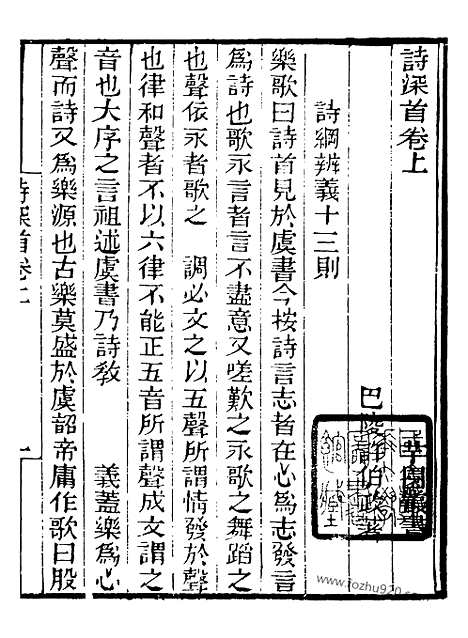 詩深首卷上
巴陵許伯政著
詩綱辨義十三則
樂歌曰詩首見於虞書今按詩言志者在心為志發言
為詩也歌永言者言不盡意又嗟歎之永歌之舞蹈之
也聲依永者歌之 調必文之以五聲所謂情發於聲
也律和聲者不以六律不能正五音所謂聲成文謂之
音也大序之言祖述虞書乃詩教 義蓋樂為心
聲而詩又為樂源也古樂莫盛於虞韶帝庸作歌曰股
詩深首卷上
一
www.fozhu920.com